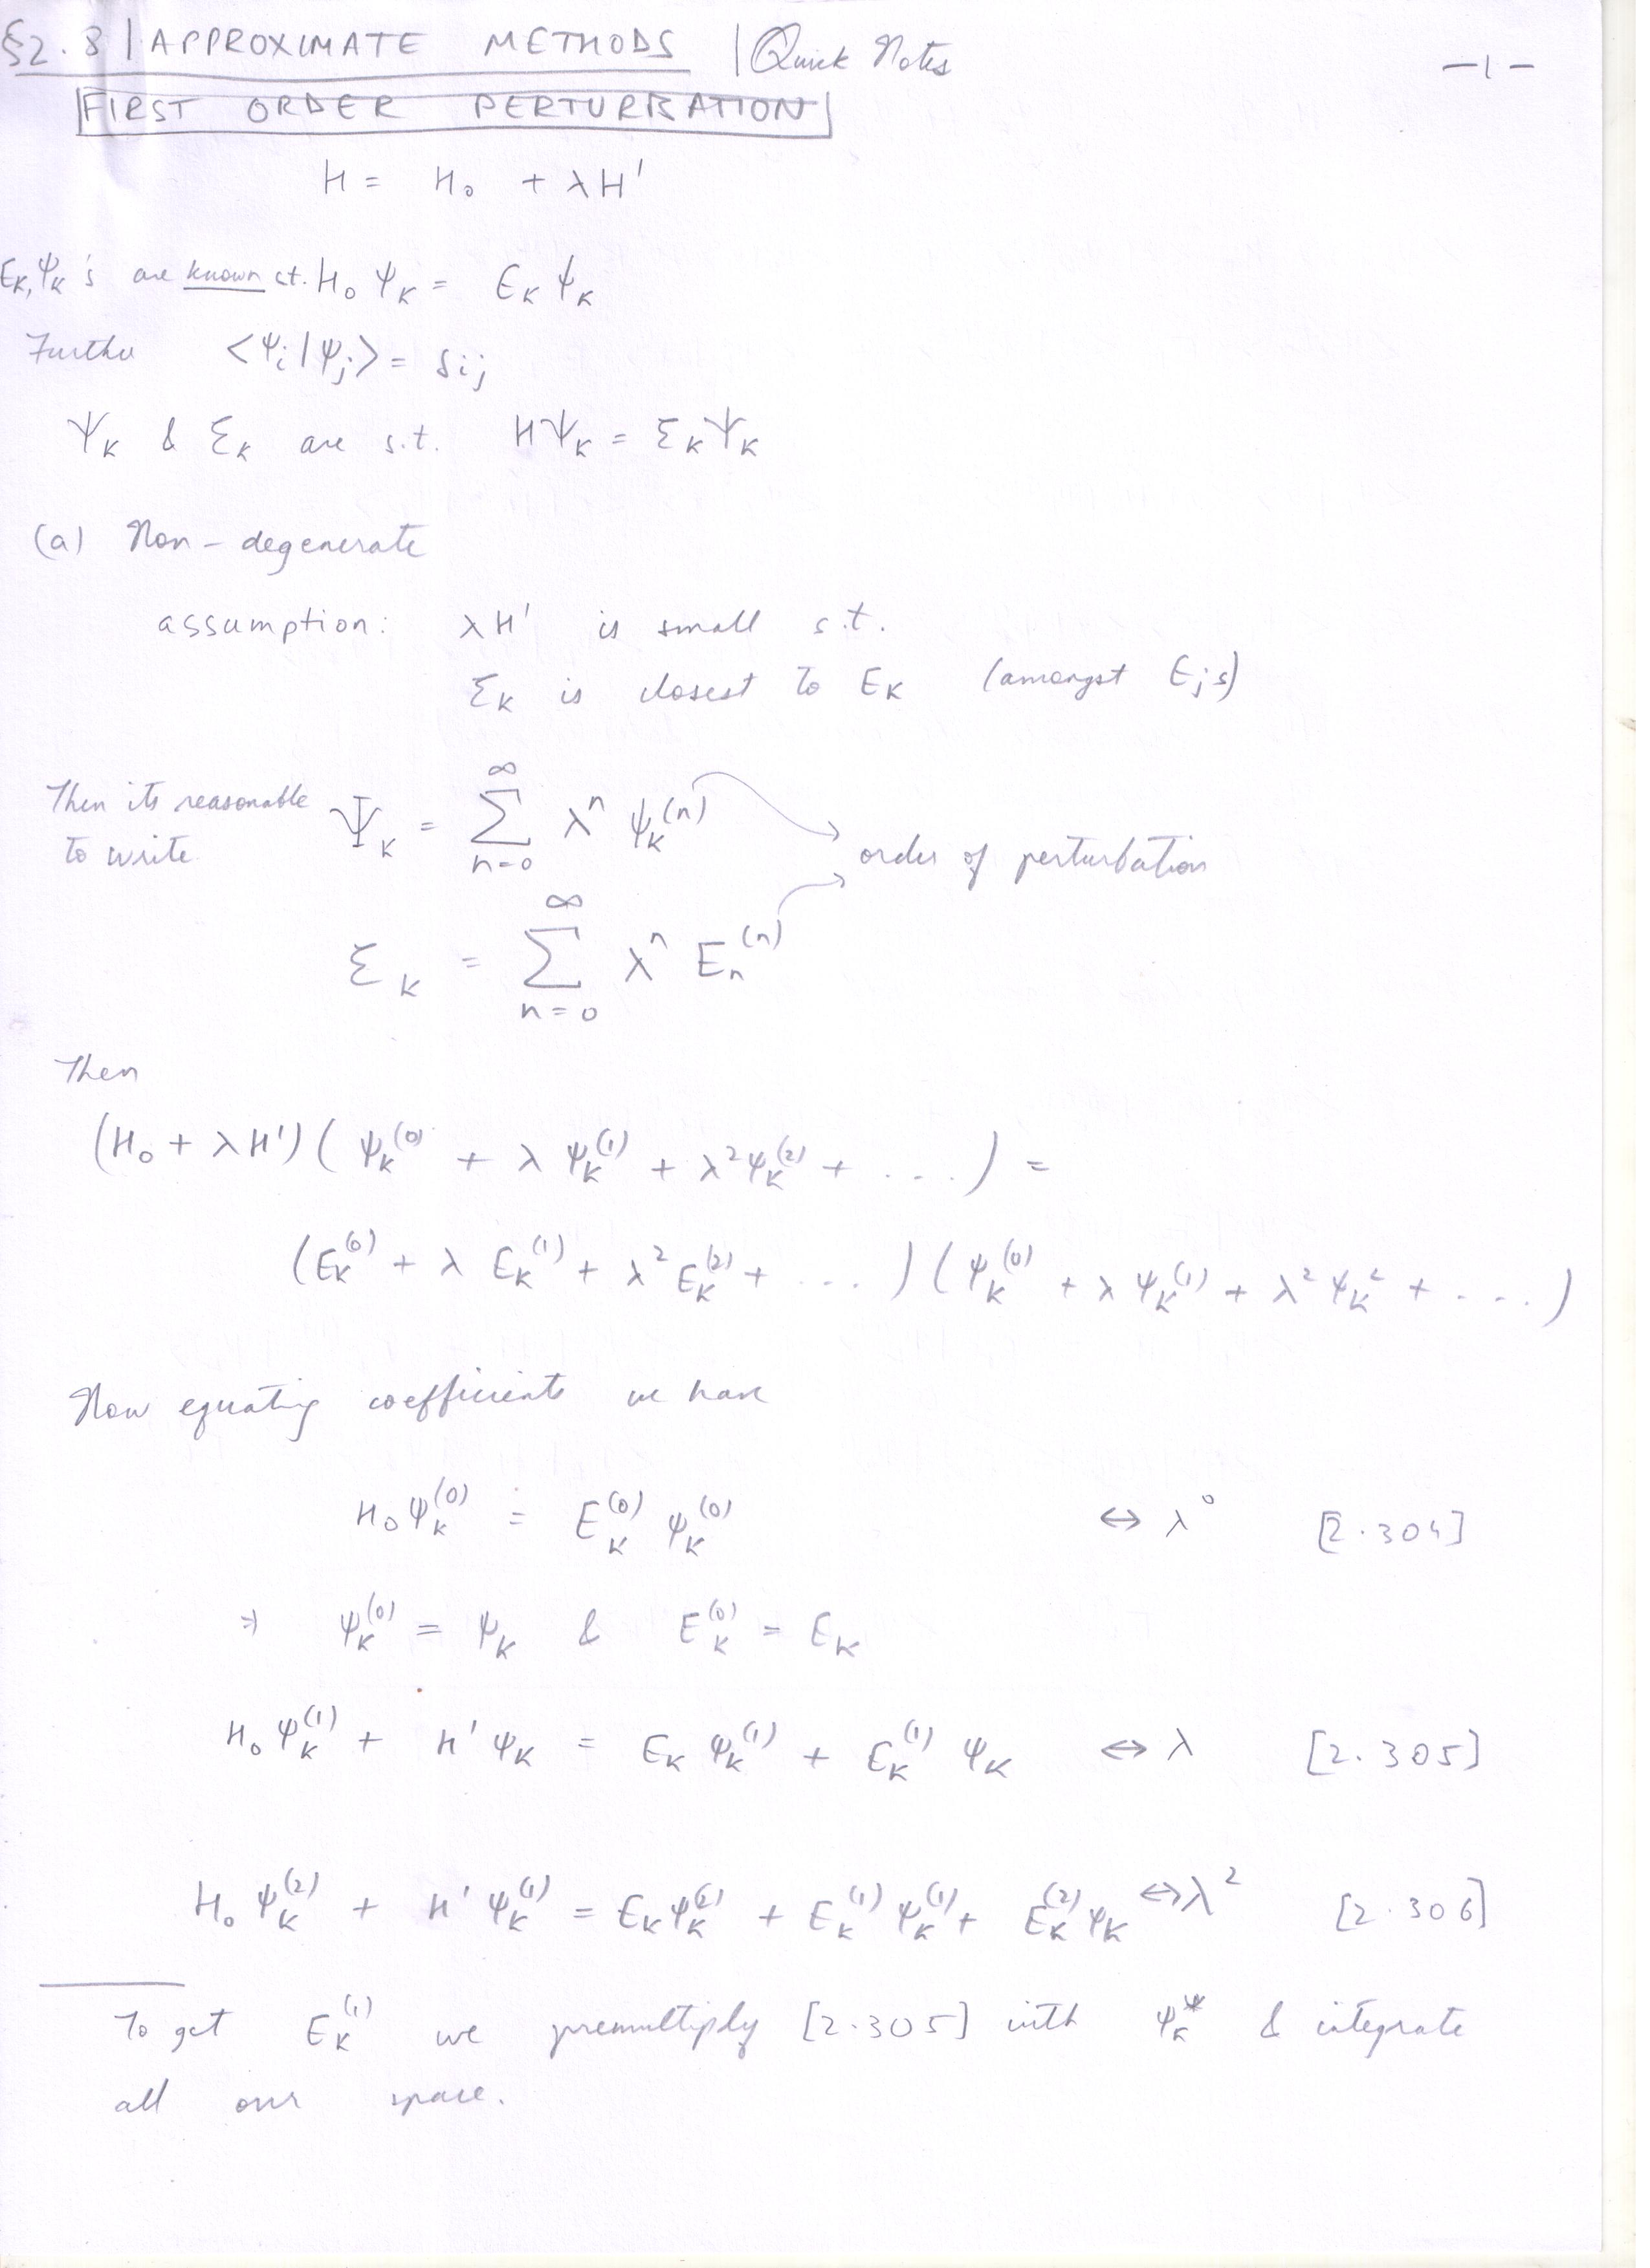 §2.8 | APPROXIMATE METHODS | Quick Notes -1-
FIRST ORDER PERTURBATION
H = H₀ + λH'
E_K, ψ_K's are known st. H₀ ψ_K = E_K ψ_K
Further <ψ_i|ψ_j> = δ_ij
Ψ_K & Ɛ_K are s.t. HΨ_K = Ɛ_K Ψ_K
(a) Non-degenerate
assumption: λH' is small s.t.
Ɛ_K is closest to E_K (amongst E_j s)
Then its reasonable to write Ψ_K = ∑_{n=0}^{∞} λ^n ψ_K^(n)
order of perturbation
Ɛ_K = ∑_{n=0}^{∞} λ^n E_n^(n)
Then
(H₀ + λH')(ψ_K^(0) + λψ_K^(1) + λ²ψ_K^(2) + ....) =
(E_K^(0) + λE_K^(1) + λ²E_K^(2) + ....)(ψ_K^(0) + λψ_K^(1) + λ²ψ_K^2 + ....)
Now equating coefficients we have
H₀ψ_K^(0) = E_K^(0) ψ_K^(0) ↔ λ⁰ [2.304]
⇒ ψ_K^(0) = ψ_K & E_K^(0) = E_K
H₀ψ_K^(1) + H'ψ_K = E_K ψ_K^(1) + E_K^(1) ψ_K ↔ λ [2.305]
H₀ψ_K^(2) + H'ψ_K^(1) = E_Kψ_K^(2) + E_K^(1)ψ_K^(1) + E_K^(2)ψ_K ↔ λ² [2.306]
To get E_K^(1) we premultiply [2.305] with ψ_K^* & integrate
all over space.